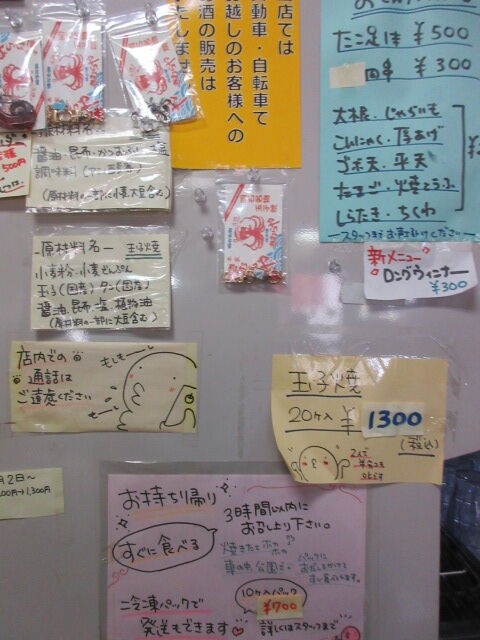 店では
動車・自転車で
越しのお客様への
酒の販売は
たこ足は ¥500
串 ¥300
大根・じゃがいも
こんにゃく・厚あげ
ゴボ天・平天
たまご・焼とうふ
しらたき・ちくわ
スタッフまでお声がけください
新メニュー
ロングウィンナー
¥300
原材料名
醤油・昆布・かつおぶし・塩
(原材料の一部に小麦大豆含む)
原材料名 玉子焼
小麦粉・小麦でんぷん
玉子(国産)タコ(国産)
醤油・昆布・塩・植物油
(原材料の一部に大豆含む)
店内での
通話は
ご遠慮ください
もしもー
玉子焼
20ヶ入 ¥1300
(税込)
2人で
月2日〜
00円→1,300円
お持ち帰り
すぐに食べる
3時間以内に
お召し上り下さい。
焼きたてホカホカ
車の中、公園で
10ヶ入パック
¥700
冷凍パックで
発送もできます
詳しくはスタッフまで